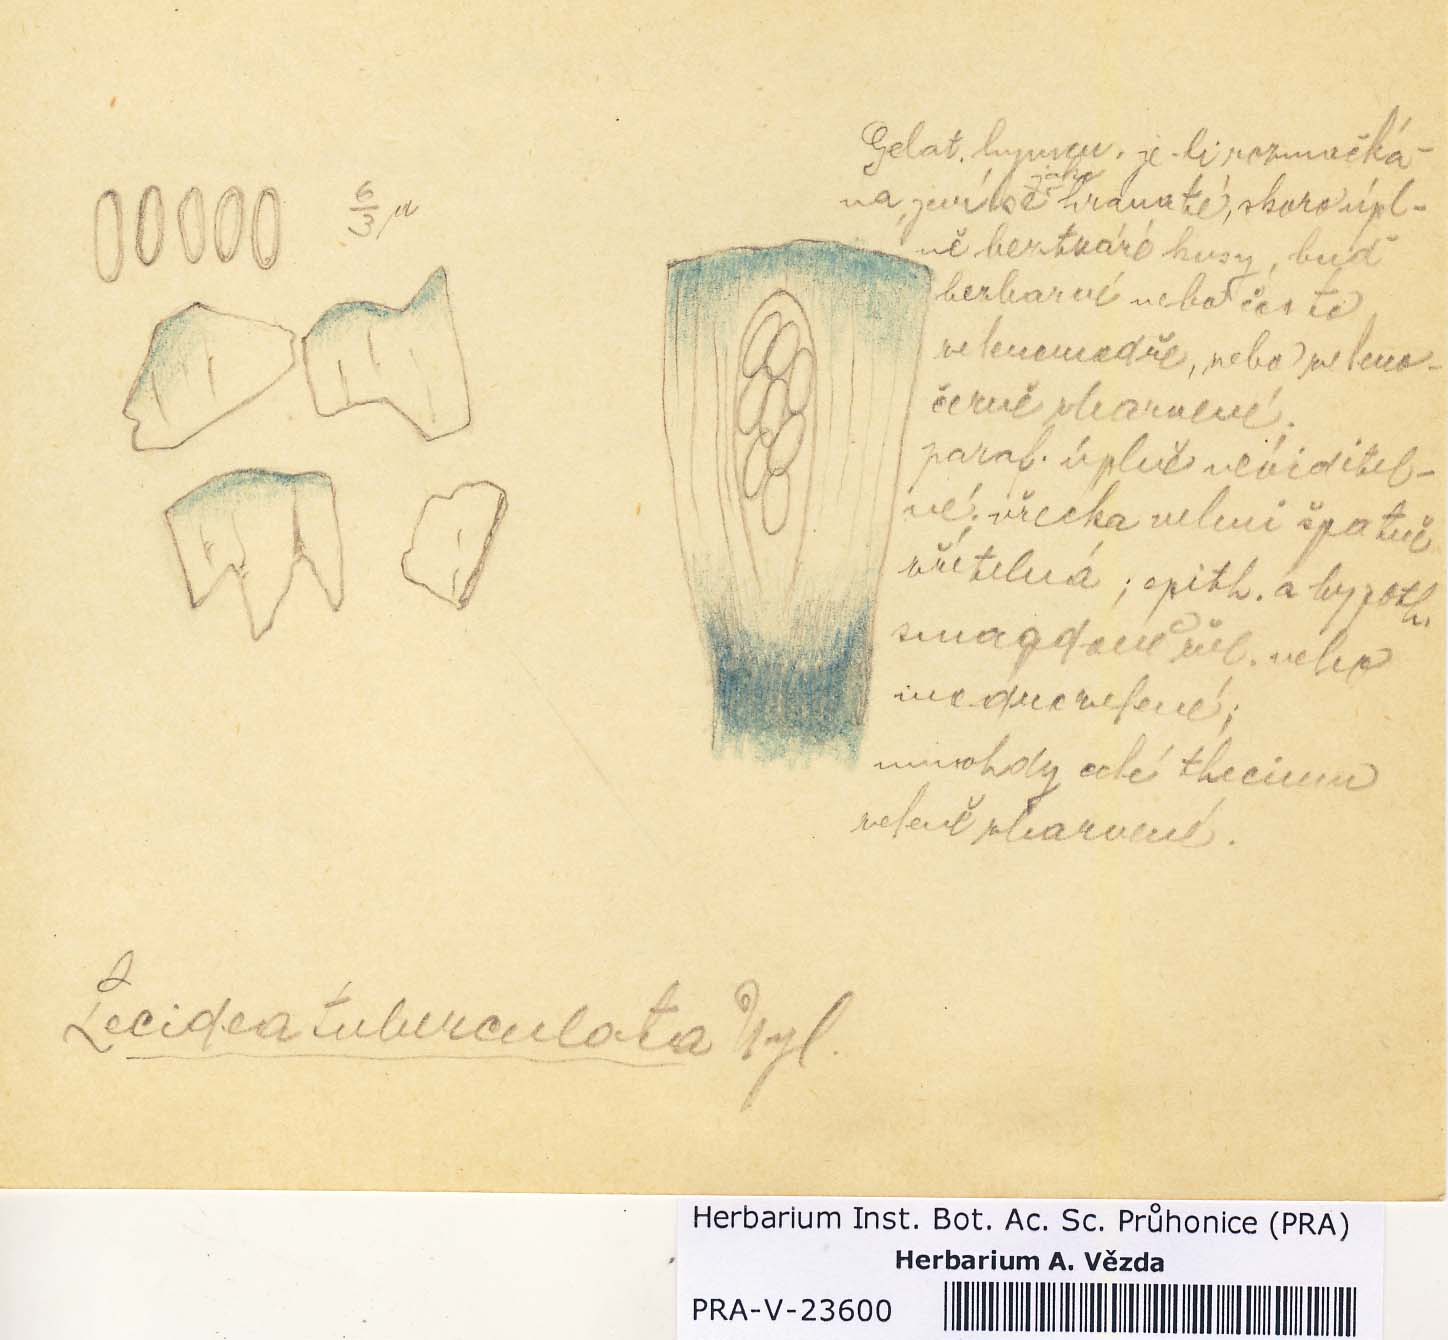 6/3 µ
Gelat. hymen. je-li rozmačká-
na, jeví se jako hranaté, skoro úpl-
ně beztvaré kusy, buď
bezbarvé nebo často
zelenomodře, nebo zeleno-
černě zbarvené.
paraf. úplně neviditel-
né; vřecka velmi špatně
zřítelná; epith. a hypoth.
nebo
modrozelené;
mnohdy celé thecium
zeleně zbarvené.
Lecidea tuberculata Nyl.
Herbarium Inst. Bot. Ac. Sc. Průhonice (PRA)
Herbarium A. Vězda
PRA-V-23600